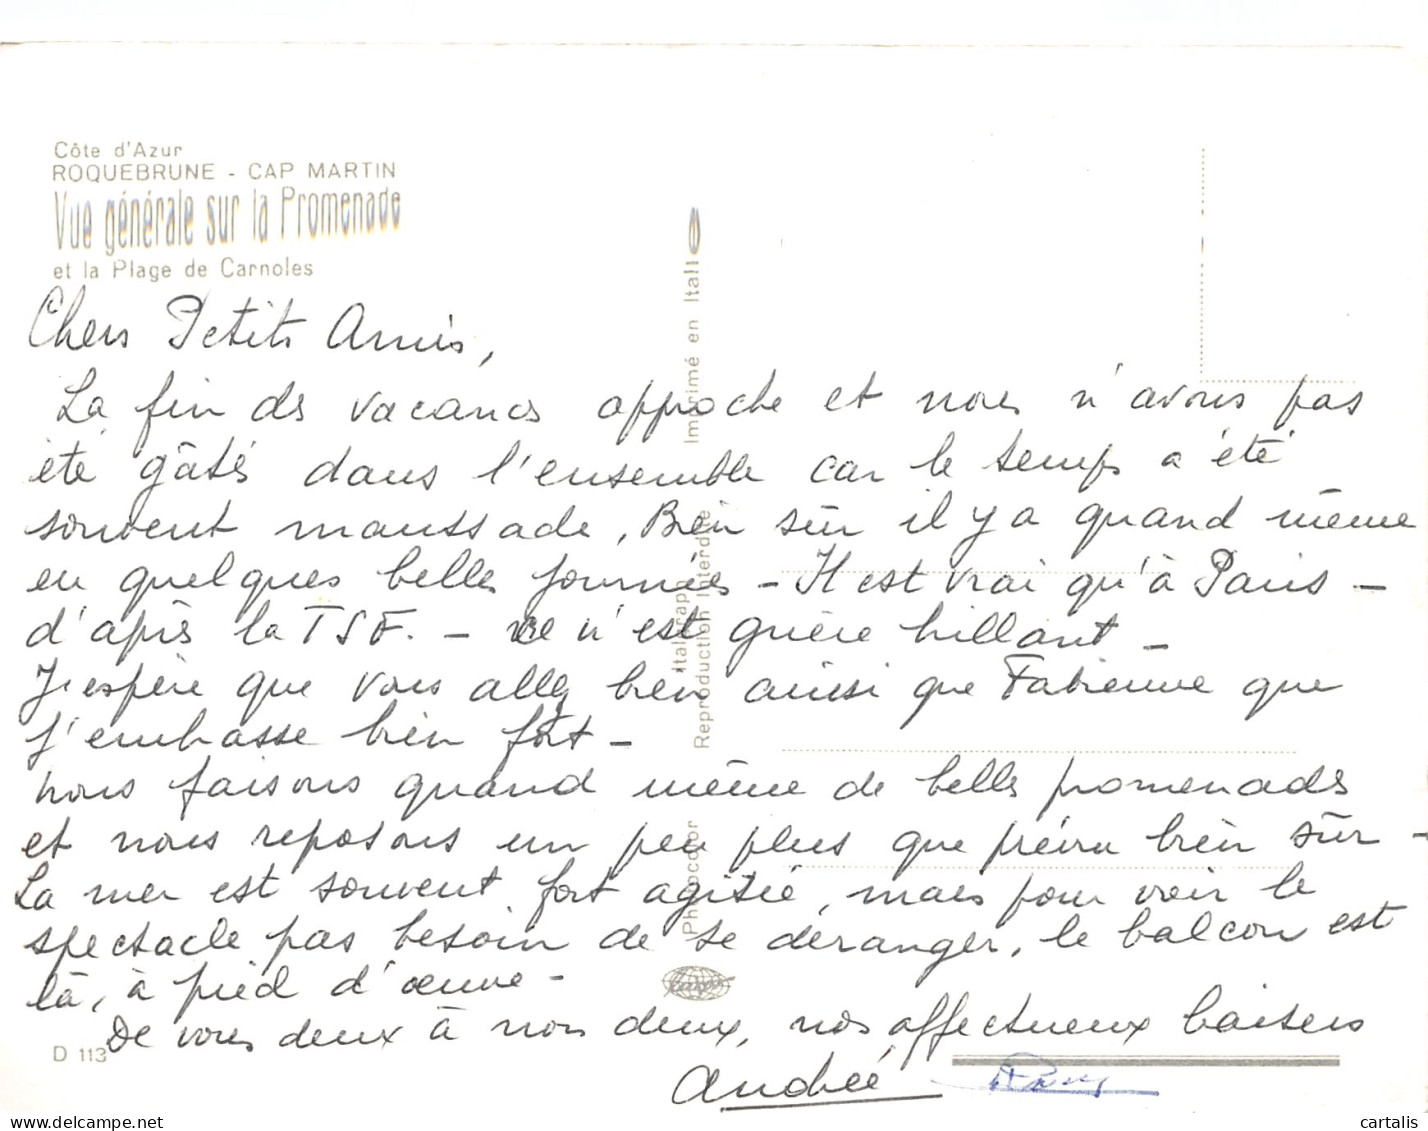 Côte d'Azur
ROQUEBRUNE - CAP MARTIN
Vue générale sur la Promenade
et la Plage de Carnoles
Chers Petits Amis,
La fin des vacances approche et nous n'avons pas
été gâtés dans l'ensemble car le temps a été
souvent maussade, Bien sûr il y a quand même
eu quelques belles journées - Il est vrai qu'à Paris -
d'après la TSF. - ce n'est guère brillant -
J'espère que vous allez bien ainsi que Fabienne que
j'embrasse bien fort -
nous faisons quand même de belles promenades
et nous reposons un peu plus que prévu bien sûr -
La mer est souvent fort agitée, mais pour voir le
spectacle pas besoin de se déranger, le balcon est
là, à pied d'œuvre -
De vous deux à nous deux, nos affectueux baisers
Andrée
D 113
Imprimé en Itali
Reproduction Interdite
cartalis.com
cartalis